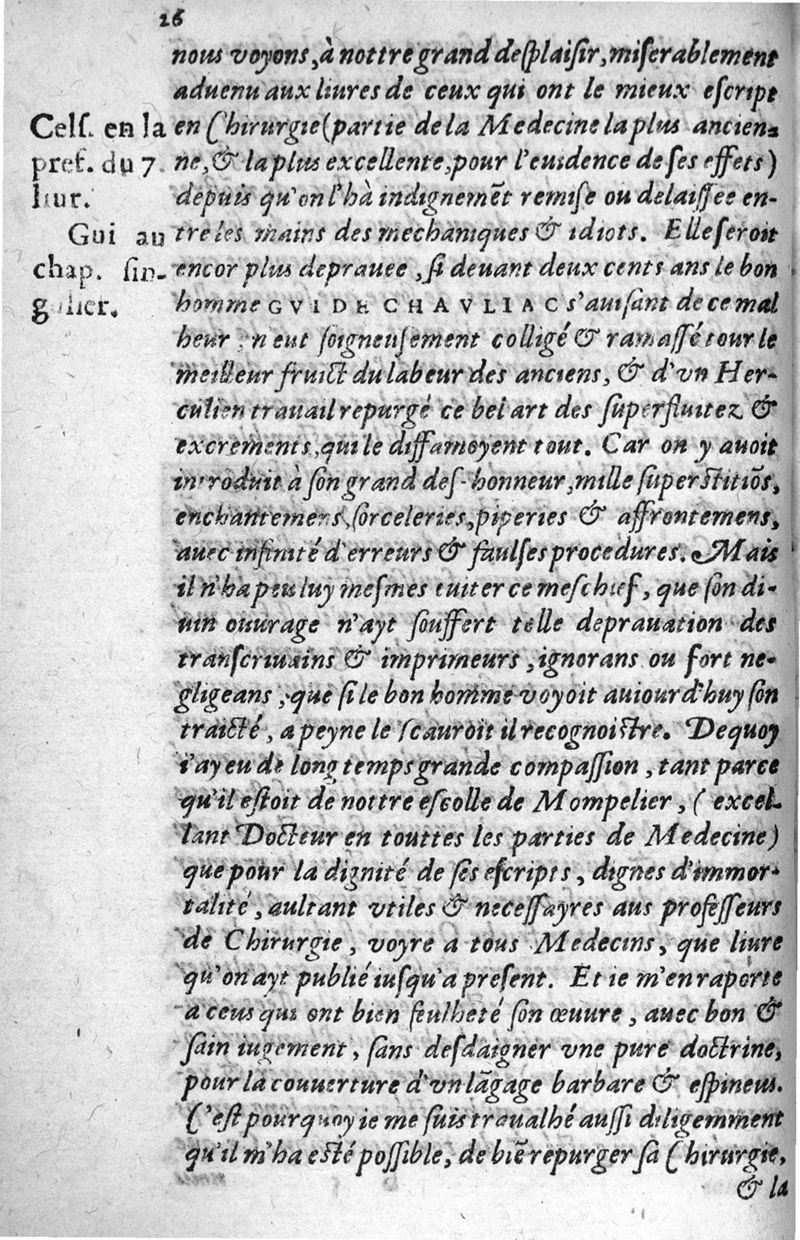 26
nous voyons, à nottre grand desplaisir, miserablement
aduenu aux liures de ceux qui ont le mieux escript
Cels. en la
pref. du 7.
liur.
en Chirurgie (partie de la Medecine la plus ancien-
ne, & la plus excellente, pour l'euidence de ses effets)
depuis qu'on l'hà indignemẽt remise ou delaissee en-
Gui au
chap. sin-
gulier.
tre les mains des mechaniques & idiots. Elle seroit
encor plus deprauee, si deuant deux cents ans le bon
homme GVI DE CHAVLIAC s'auisant de ce mal
heur, n'eut soigneusement colligé & ramassé tout le
meilleur fruict du labeur des anciens, & d'vn Her-
culien trauail repurgé ce bel art des superfluitez &
excrements, qui le diffamoyent tout. Car on y auoit
introduit à son grand des-honneur, mille superstitiõs,
enchantemens, sorceleries, piperies & affrontemens,
auec infinité d'erreurs & faulses procedures. Mais
il n'ha peu luy mesmes euiter ce meschief, que son di-
uin ouurage n'ayt souffert telle deprauation des
transcriuains & imprimeurs, ignorans ou fort ne-
gligeans, que si le bon homme voyoit auiourd'huy son
traicté, a peyne le scauroit il recognoistre. Dequoy
i'ay eu de long temps grande compassion, tant parce
qu'il estoit de nottre escolle de Mompelier, (excel-
lant Docteur en touttes les parties de Medecine)
que pour la dignité de ses escripts, dignes d'immor-
talité, aultant vtiles & necessayres aus professeurs
de Chirurgie, voyre a tous Medecins, que liure
qu'on ayt publié iusqu'a present. Et ie m'en raporte
a ceus qui ont bien feulheté son œuure, auec bon &
sain iugement, sans desdaigner vne pure doctrine,
pour la couuerture d'vn lãgage barbare & espineus.
C'est pourquoy ie me suis traualhé aussi diligemment
qu'il m'ha esté possible, de biẽ repurger sa Chirurgie,
& la